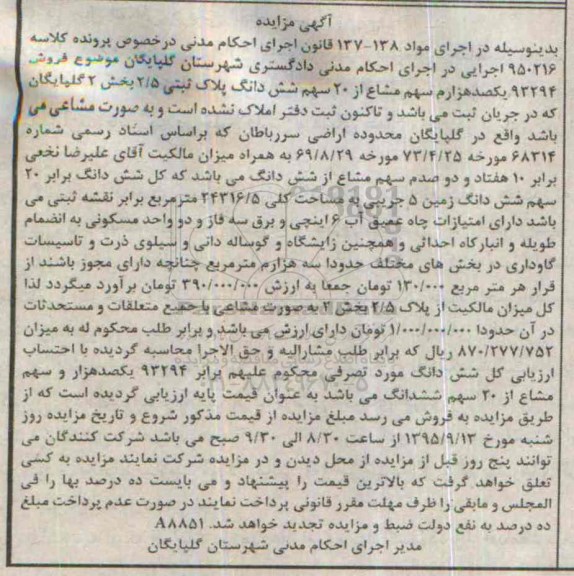 آگهی مزایده
بدینوسیله در اجرای مواد ۱۳۸-۱۳۷ قانون اجرای احکام مدنی درخصوص پرونده کلاسه
۹۵۰۲۱۶ اجرایی در اجرای احکام مدنی دادگستری شهرستان گلپایگان موضوع فروش
۹۳۲۹۴ یکصدهزارم سهم مشاع از ۲۰ سهم شش دانگ پلاک ثبتی ۲/۵ بخش ۲ گلپایگان
که در جریان ثبت می باشد و تاکنون ثبت دفتر املاک نشده است و به صورت مشاعی می
باشد واقع در گلپایگان محدوده اراضی سررباطان که براساس اسناد رسمی شماره
۶۸۳۱۴ مورخه ۷۳/۴/۲۵ مورخه ۶۹/۸/۲۹ به همراه میزان مالکیت آقای علیرضا نخعی
برابر ۱۰ هفتاد و دو صدم سهم مشاع از شش دانگ می باشد که کل شش دانگ برابر ۲۰
سهم شش دانگ زمین ۵ جریبی به مساحت کلی ۲۴۳۱۶/۵ مترمربع برابر نقشه ثبتی می
باشد دارای امتیازات چاه عمیق آب ۶ اینچی و برق سه فاز و دو واحد مسکونی به انضمام
طویله و انبارکاه احداثی و همچنین زایشگاه و گوساله دانی و سیلوی ذرت و تاسیسات
گاوداری در بخش های مختلف حدودا سه هزارم مترمربع چنانچه دارای مجوز باشند از
قرار هر متر مربع ۱۳۰/۰۰۰ تومان جمعا به ارزش ۳۹۰/۰۰۰/۰۰۰ تومان برآورد میگردد لذا
کل میزان مالکیت از پلاک ۲/۵ بخش ۲ به صورت مشاعی با جمیع متعلقات و مستحدثات
در آن حدودا ۱/۰۰۰/۰۰۰/۰۰۰ تومان دارای ارزش می باشد و برابر طلب محکوم له به میزان
۸۷۰/۲۷۷/۷۵۲ ریال که برابر طلب مشارالیه و حق الاجرا محاسبه گردیده با احتساب
ارزیابی کل شش دانگ مورد تصرفی محکوم علیهم برابر ۹۳۲۹۴ یکصدهزار و سهم
مشاع از ۲۰ سهم ششدانگ می باشد به عنوان قیمت پایه ارزیابی گردیده است که از
طریق مزایده به فروش می رسد مبلغ مزایده از قیمت مذکور شروع و تاریخ مزایده روز
شنبه مورخ ۱۳۹۵/۹/۱۳ از ساعت ۸/۳۰ الی ۹/۳۰ صبح می باشد شرکت کنندگان می
توانند پنج روز قبل از مزایده از محل دیدن و در مزایده شرکت نمایند مزایده به کسی
تعلق خواهد گرفت که بالاترین قیمت را پیشنهاد و می بایست ده درصد بها را فی
المجلس و مابقی را ظرف مهلت مقرر قانونی پرداخت نمایند در صورت عدم پرداخت مبلغ
ده درصد به نفع دولت ضبط و مزایده تجدید خواهد شد. A۸۸۵۱
مدیر اجرای احکام مدنی شهرستان گلپایگان